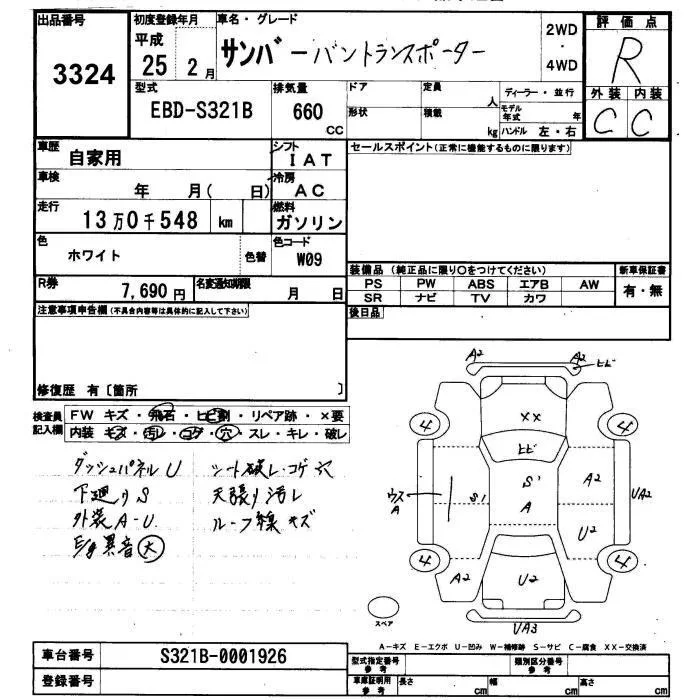 出品番号
3324
初度登録年月
平成
25 2月
車名・グレード
サンバーバントランスポーター
2WD
・
4WD
評価点
R
外装 内装
C C
型式
EBD-S321B
排気量
660
CC
ドア
定員
人
形状
積載
kg
ディーラー・並行
モデル年式 年
ハンドル 左・右
車歴
自家用
シフト
IAT
セールスポイント(正常に機能するものに限ります)
車検
年 月( 日)
冷房
AC
走行
13万0千548 km
燃料
ガソリン
色
ホワイト
色替
色コード
W09
装備品(純正品に限り〇をつけてください)
新車保証書
PS PW ABS エアB AW
有・無
SR ナビ TV カワ
R券
7,690円
名変通知期限
月 日
後日品
注意事項申告欄(不具合内容等は具体的に記入して下さい)
修復歴 有〔箇所 〕
検査員記入欄
FW キズ・飛石・ヒビ割・リペア跡・×要
内装 キズ・汚レ・コゲ・穴・スレ・キレ・破レ
ダッシュパネルU シート破レ・コゲ穴
下廻りS 天張り汚レ
外装A-U ルーフ線キズ
異音 大
A2 A2
ヒビ
4 XX 4
ヒビ
S'
ウス
A
S1 A A2 UA2
U2
4 A2 U2 4
UA3
スペア
A-キズ E-エクボ U-凹み W-補修跡 S-サビ C-腐食 XX-交換済
車台番号
S321B-0001926
型式指定番号
参考
類別区分番号
参考
登録番号
車庫証明用
参考
長さ cm
幅 cm
高さ cm